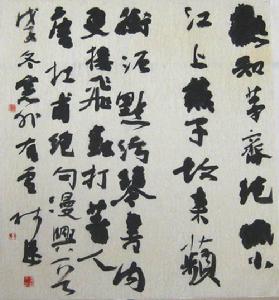 熟知茅齋絕低小
江上燕子故來頻
銜泥點污琴書內
更接飛蟲打著人
唐杜甫絕句漫興一首
冬 外有